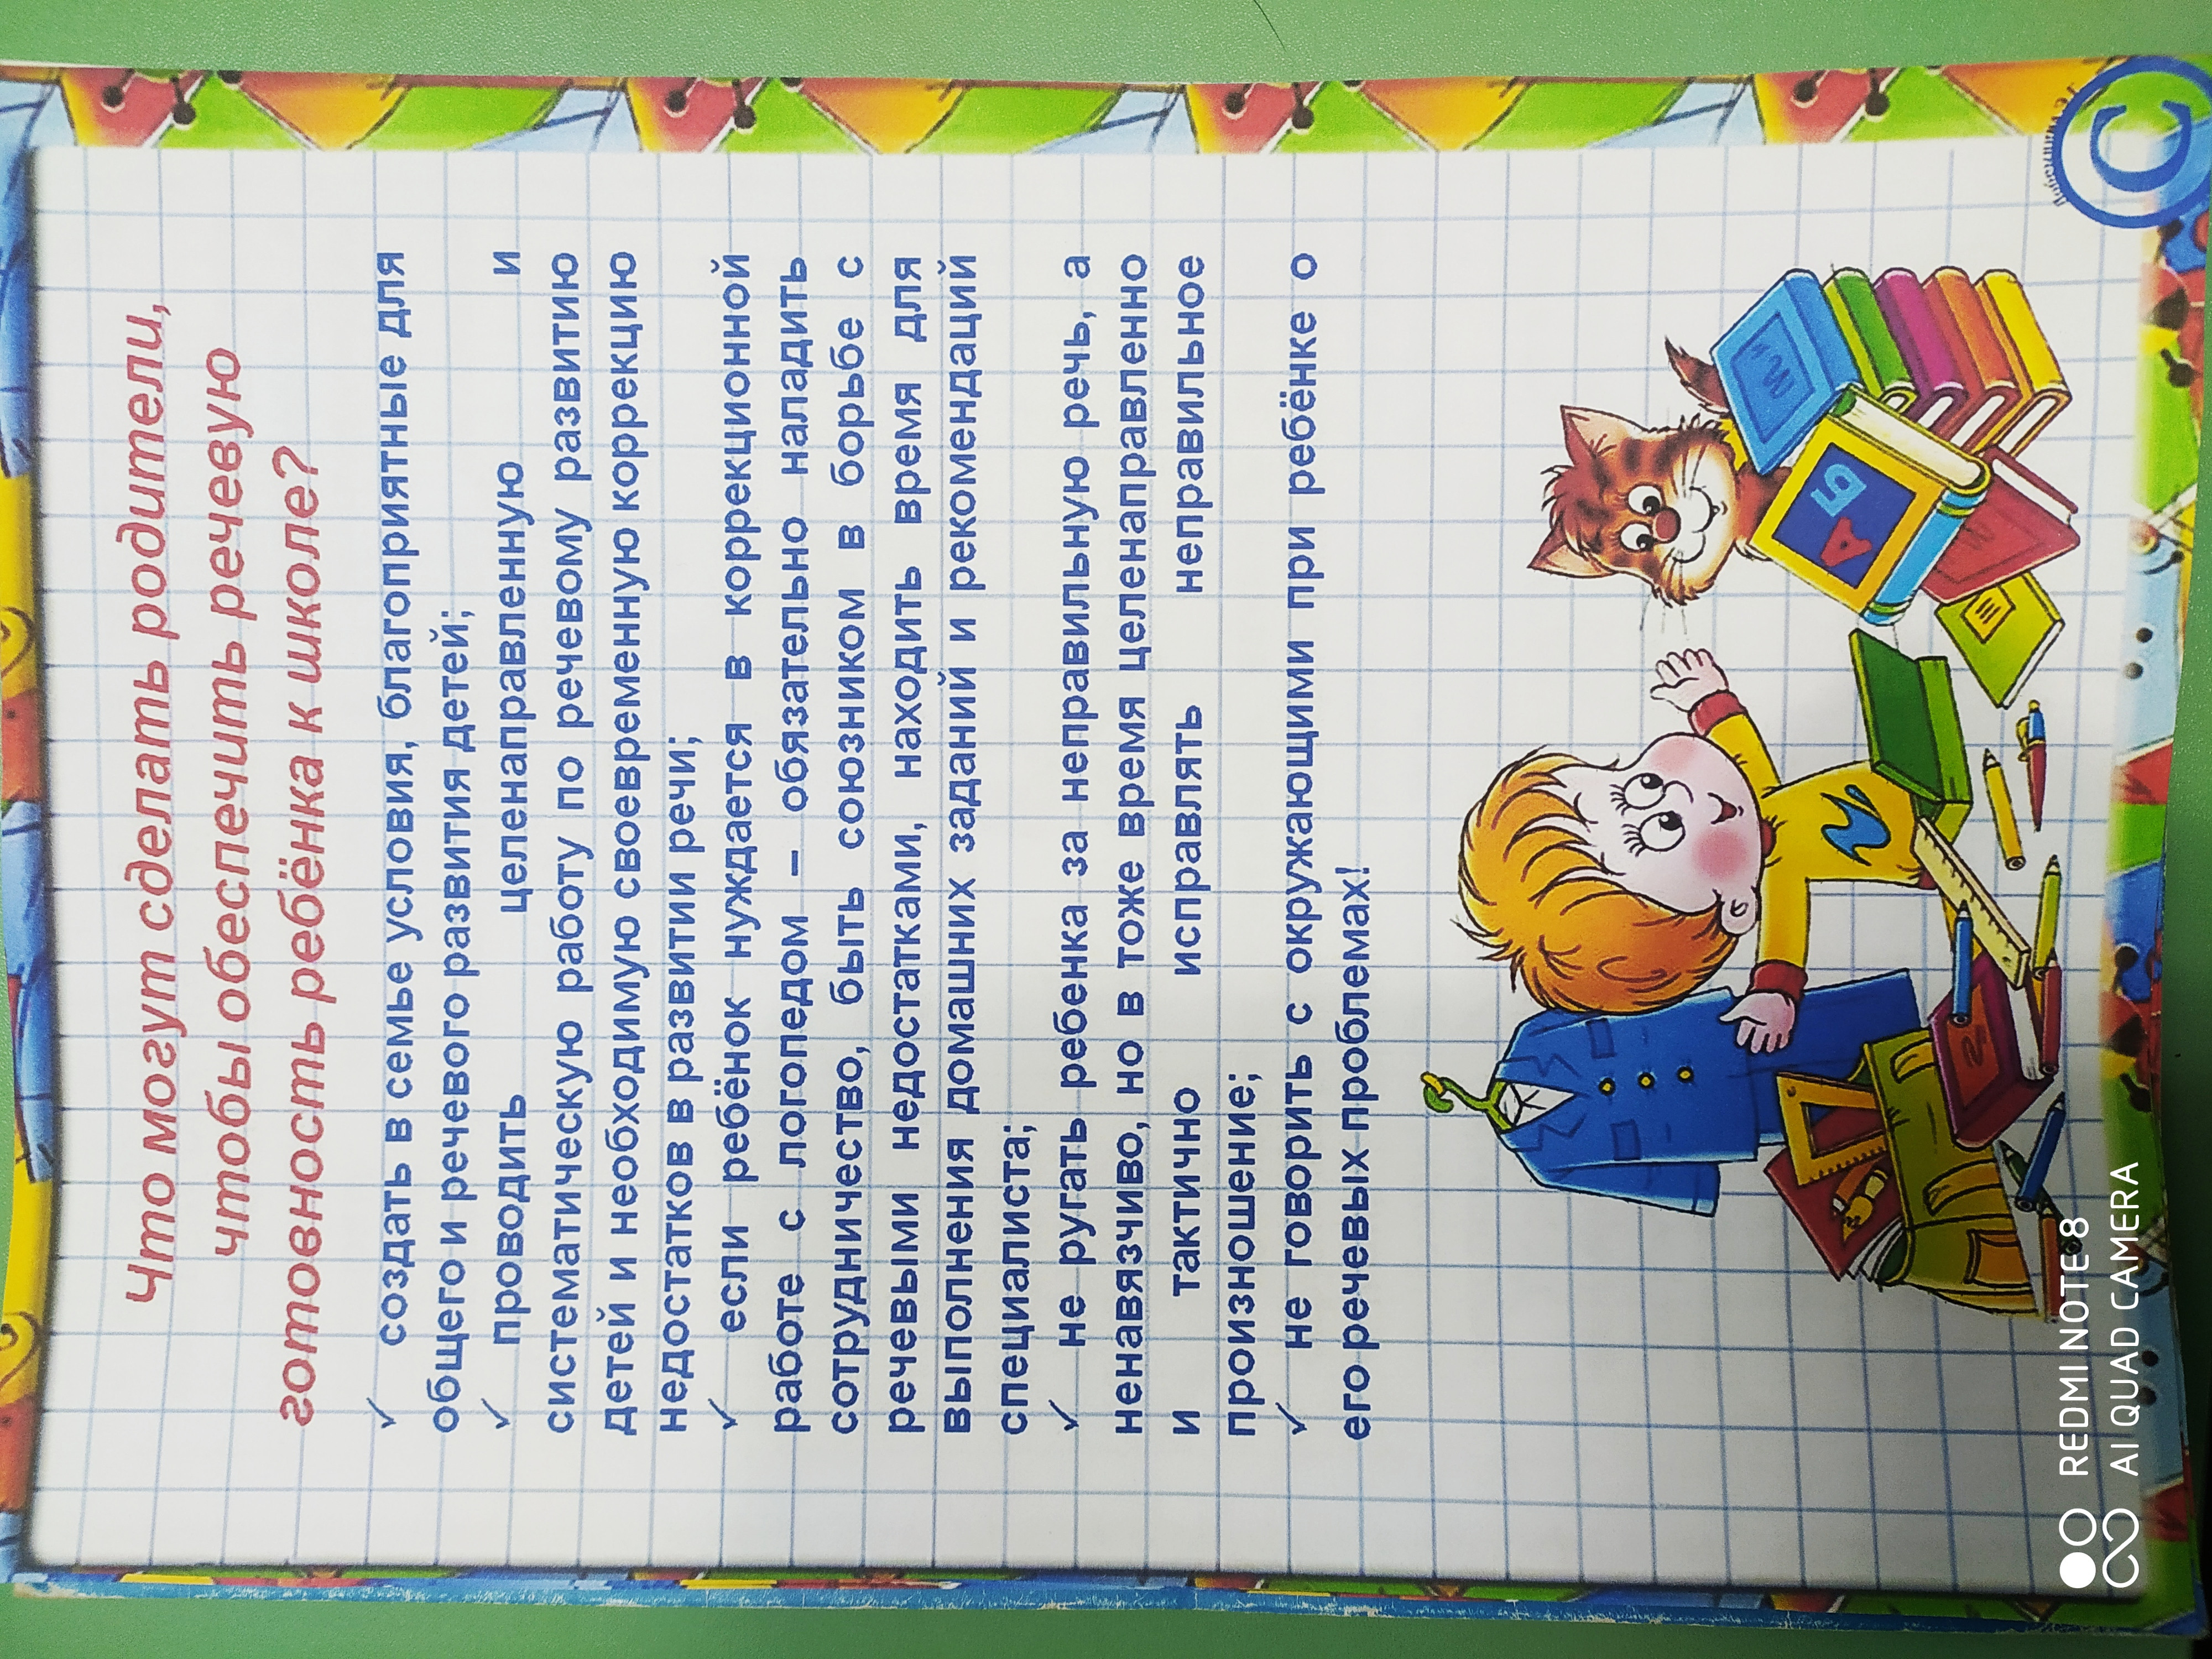 Что могут сделать родители,
чтобы обеспечить речевую
готовность ребёнка к школе?
✓ создать в семье условия, благоприятные для
общего и речевого развития детей;
✓ проводить целенаправленную и
систематическую работу по речевому развитию
детей и необходимую своевременную коррекцию
недостатков в развитии речи;
✓ если ребёнок нуждается в коррекционной
работе с логопедом – обязательно наладить
сотрудничество, быть союзником в борьбе с
речевыми недостатками, находить время для
выполнения домашних заданий и рекомендаций
специалиста;
✓ не ругать ребенка за неправильную речь, а
ненавязчиво, но в тоже время целенаправленно
и тактично исправлять неправильное
произношение;
✓ не говорить с окружающими при ребёнке о
его речевых проблемах!
А Б
С
REDMI NOTE 8
AI QUAD CAMERA